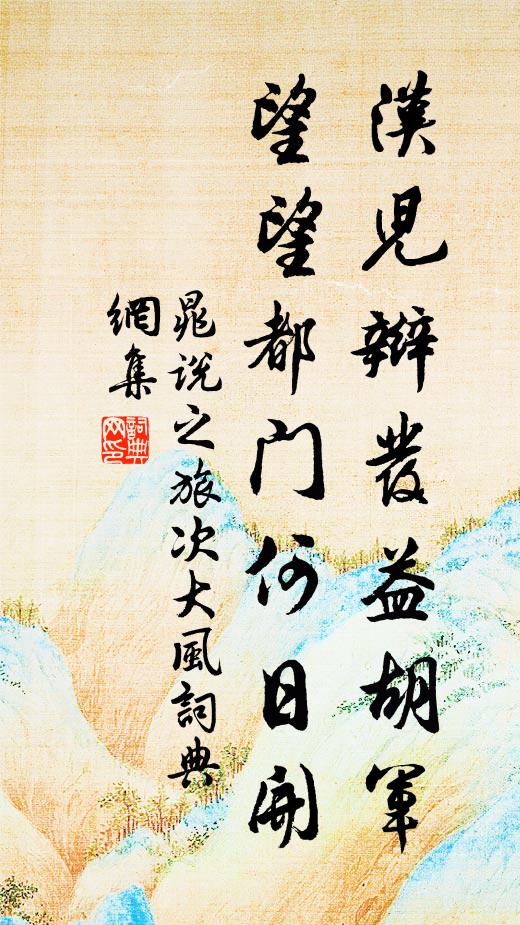 漢兒辮發益胡軍
望望都門何日開
晁說之旅次大風詞典
網集
詞典
网印